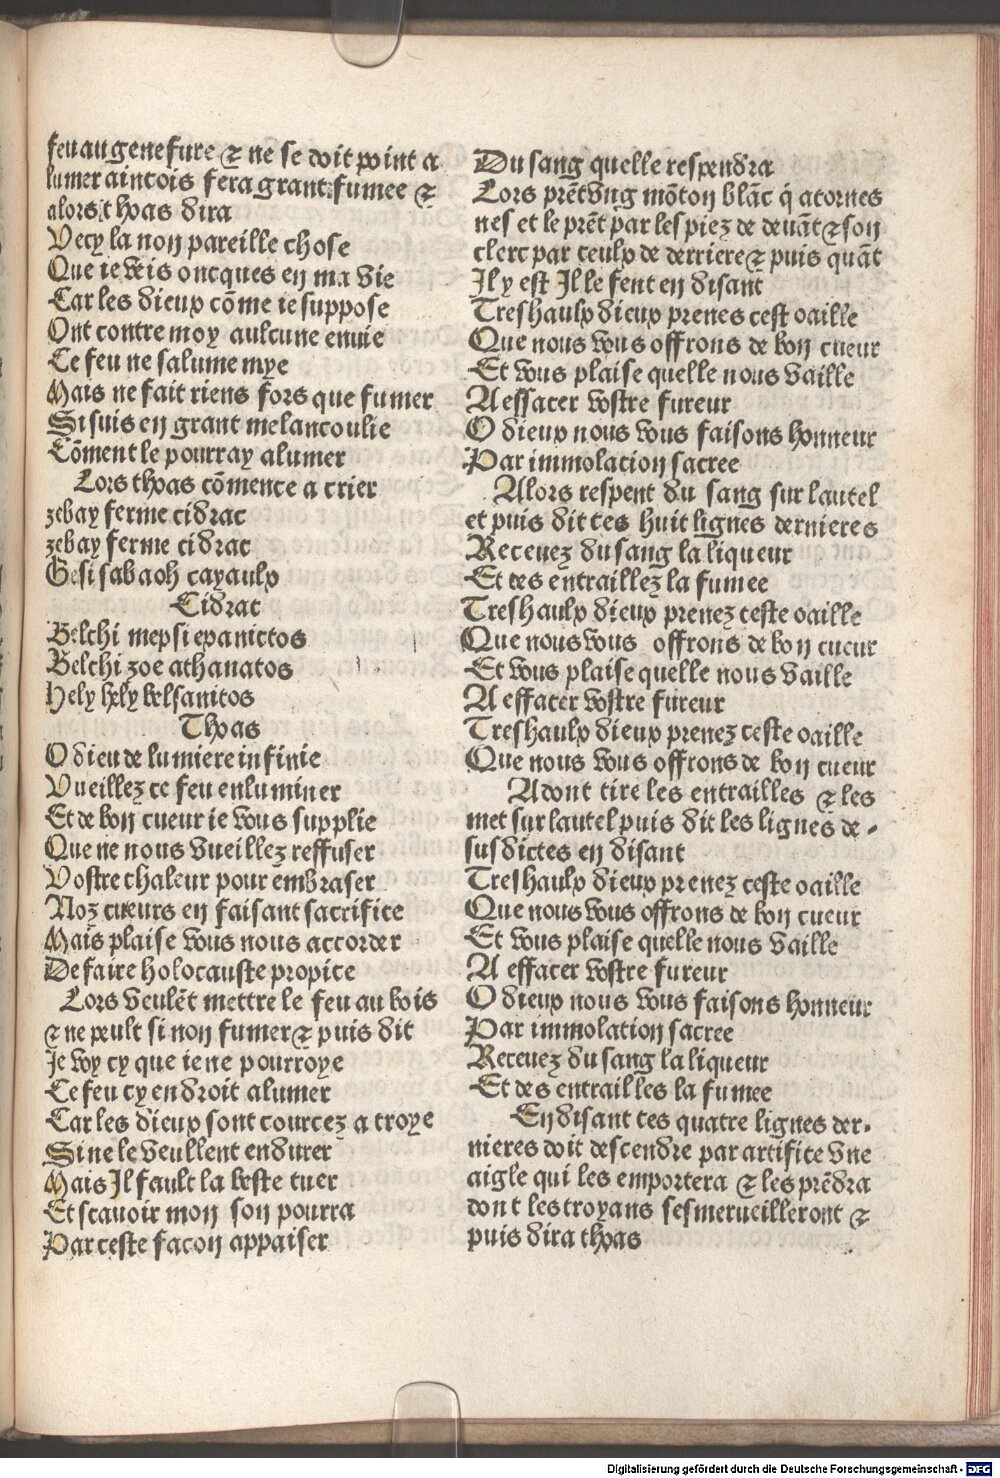 feu au genefure ⁊ ne se doit point a
lumer aincois fera grant fumee ⁊
alors thoas dira
Vecy la non pareille chose
Que ie veis oncques en ma vie
Car les dieux cōme ie suppose
Ont contre moy aulcune enuie
Ce feu ne salume mye
Mais ne fait riens fors que fumer
Si suis en grant melancoulie
Cōment le pourray alumer
Lors thoas cōmence a crier
zebay ferme cidrac
zebay ferme cidrac
Gesi sabaoh cayaulx
Cidrac
Belchi mepsi epanictos
Belchi zoe athanatos
Hely hely belsanitos
Thoas
O dieu de lumiere infinie
Vueillez ce feu enluminer
Et de bon cueur ie vous supplie
Que ne nous vueillez reffuser
Vostre chaleur pour embraser
Noz cueurs en faisant sacrifice
Mais plaise vous nous accorder
De faire holocauste propice
Lors veulēt mettre le feu au bois
⁊ ne peult si non fumer ⁊ puis dit
Je voy cy que ie ne pourroye
Ce feu cy endroit alumer
Car les dieux sont courcez a troye
Si ne le veullent endurer
Mais Il fault la beste tuer
Et scauoir mon son pourra
Par ceste facon appaiser
Du sang quelle respendra
Lors prēt vng mōton blāc q̄ a tornes
nes et le prēt par les piez de deuāt ⁊ son
clerc par ceulx de derriere ⁊ puis quāt
Il y est Il le fent en disant
Treshaulx dieux prenes cest oaille
Que nous vous offrons de bon cueur
Et vous plaise quelle nous vaille
A effacer vostre fureur
O dieux nous vous faisons honneur
Par immolacion sacree
Alors respent du sang sur lautel
et puis dit ces huit lignes dernieres
Receuez du sang la liqueur
Et des entraillez la fumee
Treshaulx dieux prenez ceste oaille
Que nous vous offrons de bon cueur
Et vous plaise quelle nous vaille
A effacer vostre fureur
Treshaulx dieux prenez ceste oaille
Que nous vous offrons de bon cueur
Adont tire les entrailles ⁊ les
met sur lautel puis dit les lignes de-
susdictes en disant
Treshaulx dieux prenez ceste oaille
Que nous vous offrons de bon cueur
Et vous plaise quelle nous vaille
A effacer vostre fureur
O dieux nous vous faisons honneur
Par immolation sacree
Receuez du sang la liqueur
Et des entrailles la fumee
En disant ces quatre lignes der-
nieres doit descendre par artifice vne
aigle qui les emportera ⁊ les prēdra
dont les troyans sesmerueilleront ⁊
puis dira thoas
Digitalisierung gefördert durch die Deutsche Forschungsgemeinschaft - DFG